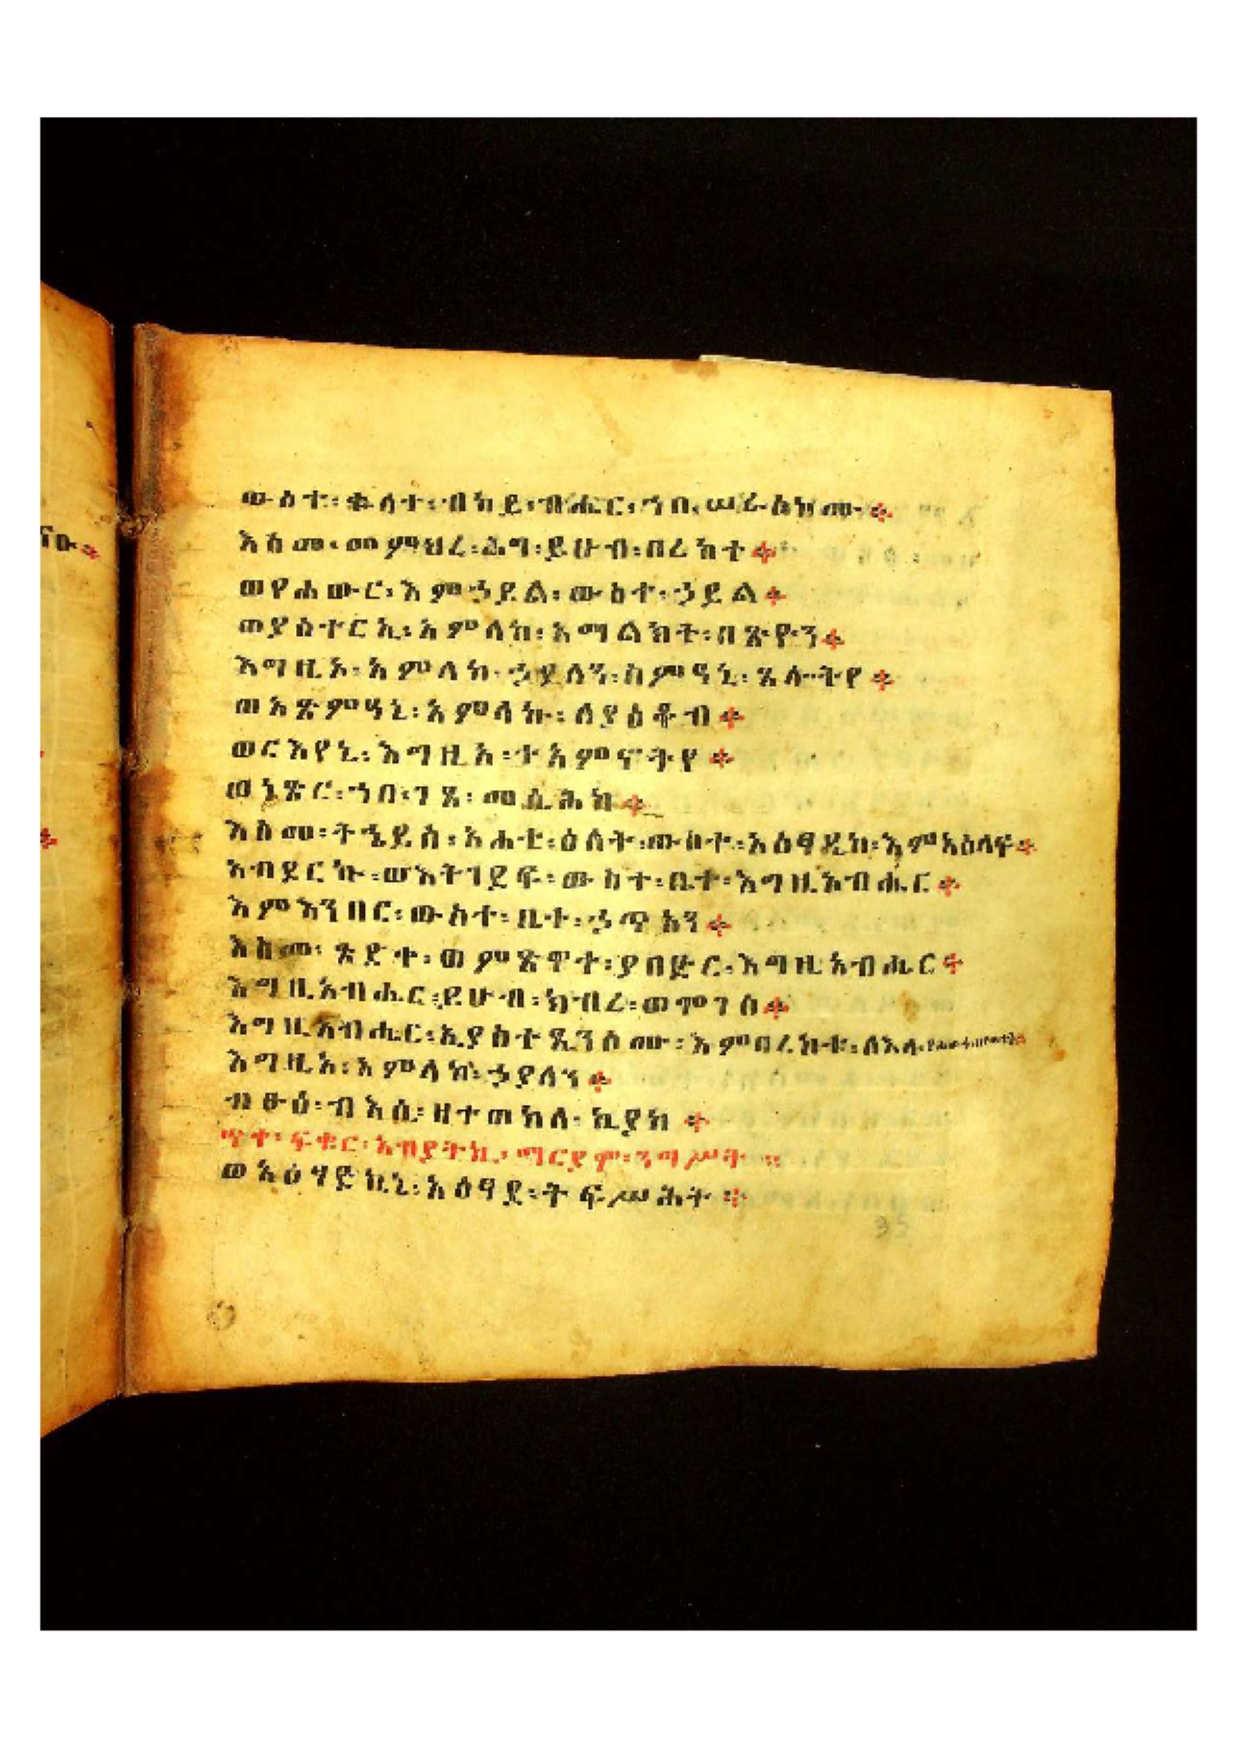 ውስተ፡ቁላተ፡ብካይ፡ብሔር፡ኀበ፡ሠራዕከሙ፨
እስመ፡መምህረ፡ሕግ፡ይሁብ፡በረከተ፨
ወየሐውር፡እምኃይል፡ውስተ፡ኃይል፨
ወያስተርኢ፡አምላከ፡አማልክት፡በጽዮን፨
እግዚኦ፡አምላከ፡ኃያላን፡ስምዓኒ፡ጸሎትየ፨
ወአጽምዓኒ፡አምላኩ፡ለያዕቆብ፨
ወርእየኒ፡እግዚአ፡ተአምኖትየ፨
ወነጽር፡ኀበ፡ገጸ፡መሲሕከ፨
እስመ፡ትኄይስ፡አሐቲ፡ዕለት፡ውስተ፡አዕፃዲከ፡እምአዕላፍ፨
አብደርኩ፡ወእትገደፍ፡ውስተ፡ቤተ፡እግዚአብሔር፨
እምእንበር፡ውስተ፡ቤተ፡ኃጥአን፨
እስመ፡ጽድቀ፡ወምጽዋተ፡ያበድር፡እግዚአብሔር፨
እግዚአብሔር፡ይሁብ፡ክብረ፡ወሞገሰ፨
እግዚአብሔር፡ኢያስተጼንሶሙ፡እምበረከቱ፡ለእለ፡
እግዚአ፡አምላከ፡ኃያላን፨
ብፁዕ፡ብእሲ፡ዘተወከለ፡ኪያከ፨
ጥተ፡ፍቁር፡አብያትኪ፡ማርያም፡ንግሥት።
ወአዕፃድኪኒ፡አዕፃደ፡ትፍሥሕት፨
35